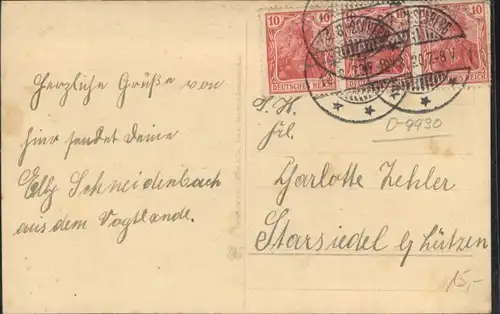 Herzliche Grüße von
hier sendet Deine
Elly Schneidenbach
aus dem Vogtlande.
10 10
DEUTSCHES REICH
20.7-8 V.
S. H.
Frl.
D-9930
Charlotte Zehler
Starsiedel b/Lützen
15,-